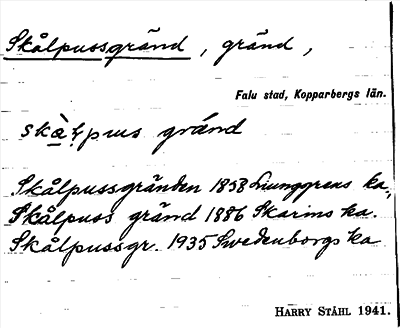 Skålpussgränd, gränd,
Falu stad, Kopparbergs län.
skàɫpus gränd
Skålpussgränden 1858 Ljunggrens ka,
Skålpuss gränd 1886 Skarins ka.
Skålpussgr. 1935 Swedenborgs ka
HARRY STÅHL 1941.